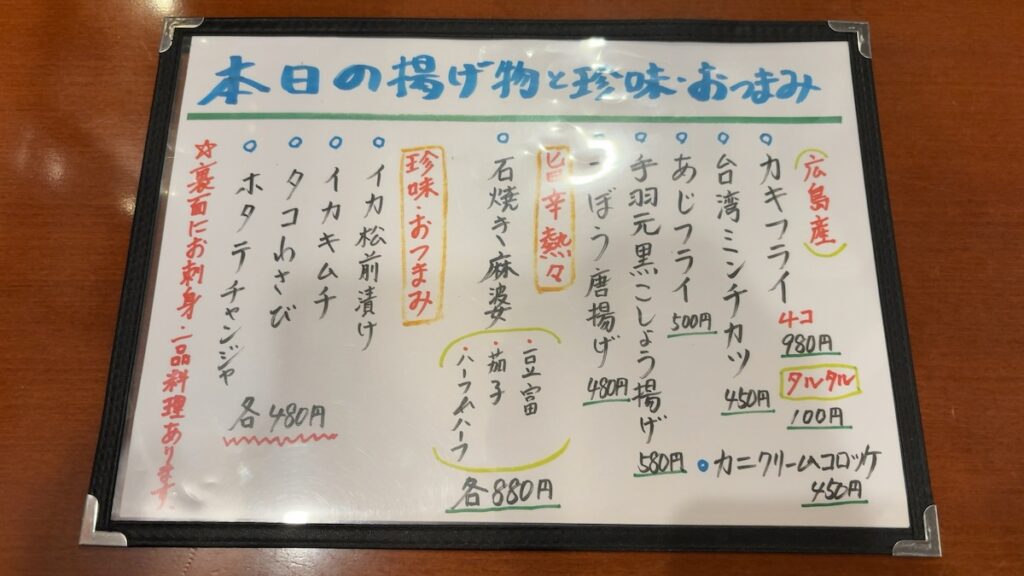 本日の揚げ物と珍味・おつまみ
広島産
カキフライ
4コ
980円
タルタル
100円
台湾ミンチカツ
450円
あじフライ
500円
手羽元黒こしょう揚げ
580円
ごぼう唐揚げ
480円
カニクリームコロッケ
450円
旨辛熱々
石焼き麻婆
・豆富
・茄子
・ハーフ&ハーフ
各880円
珍味・おつまみ
イカ松前漬け
イカキムチ
タコわさび
ホタテチャンジャ
各480円
☆裏面にお刺身・一品料理あります。